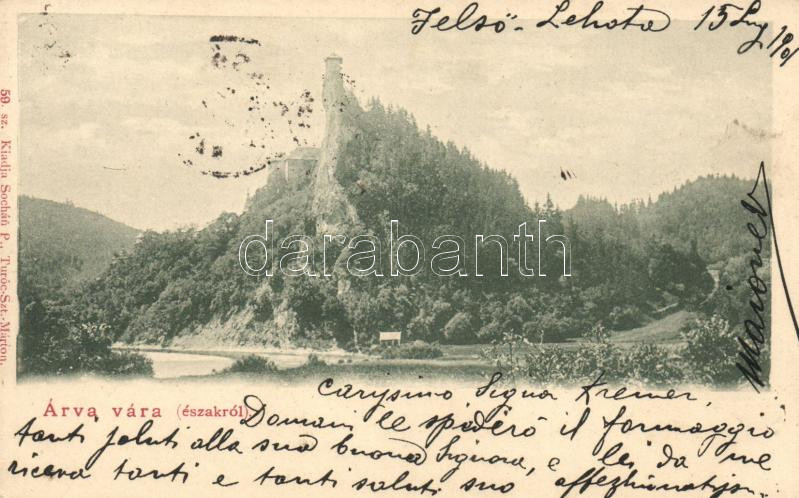 Felső-Lehota 15 Aug 1901
59. sz. Kiadja Socháń P., Turócz-Szt.-Márton.
darabanth
Árva vára (északról)
Carysimo Signor Kremer,
Domani le spedéro il formaggio
tanti saluti alla sua buona Signora, e lei da me
riceva tanti e tanti saluti suo